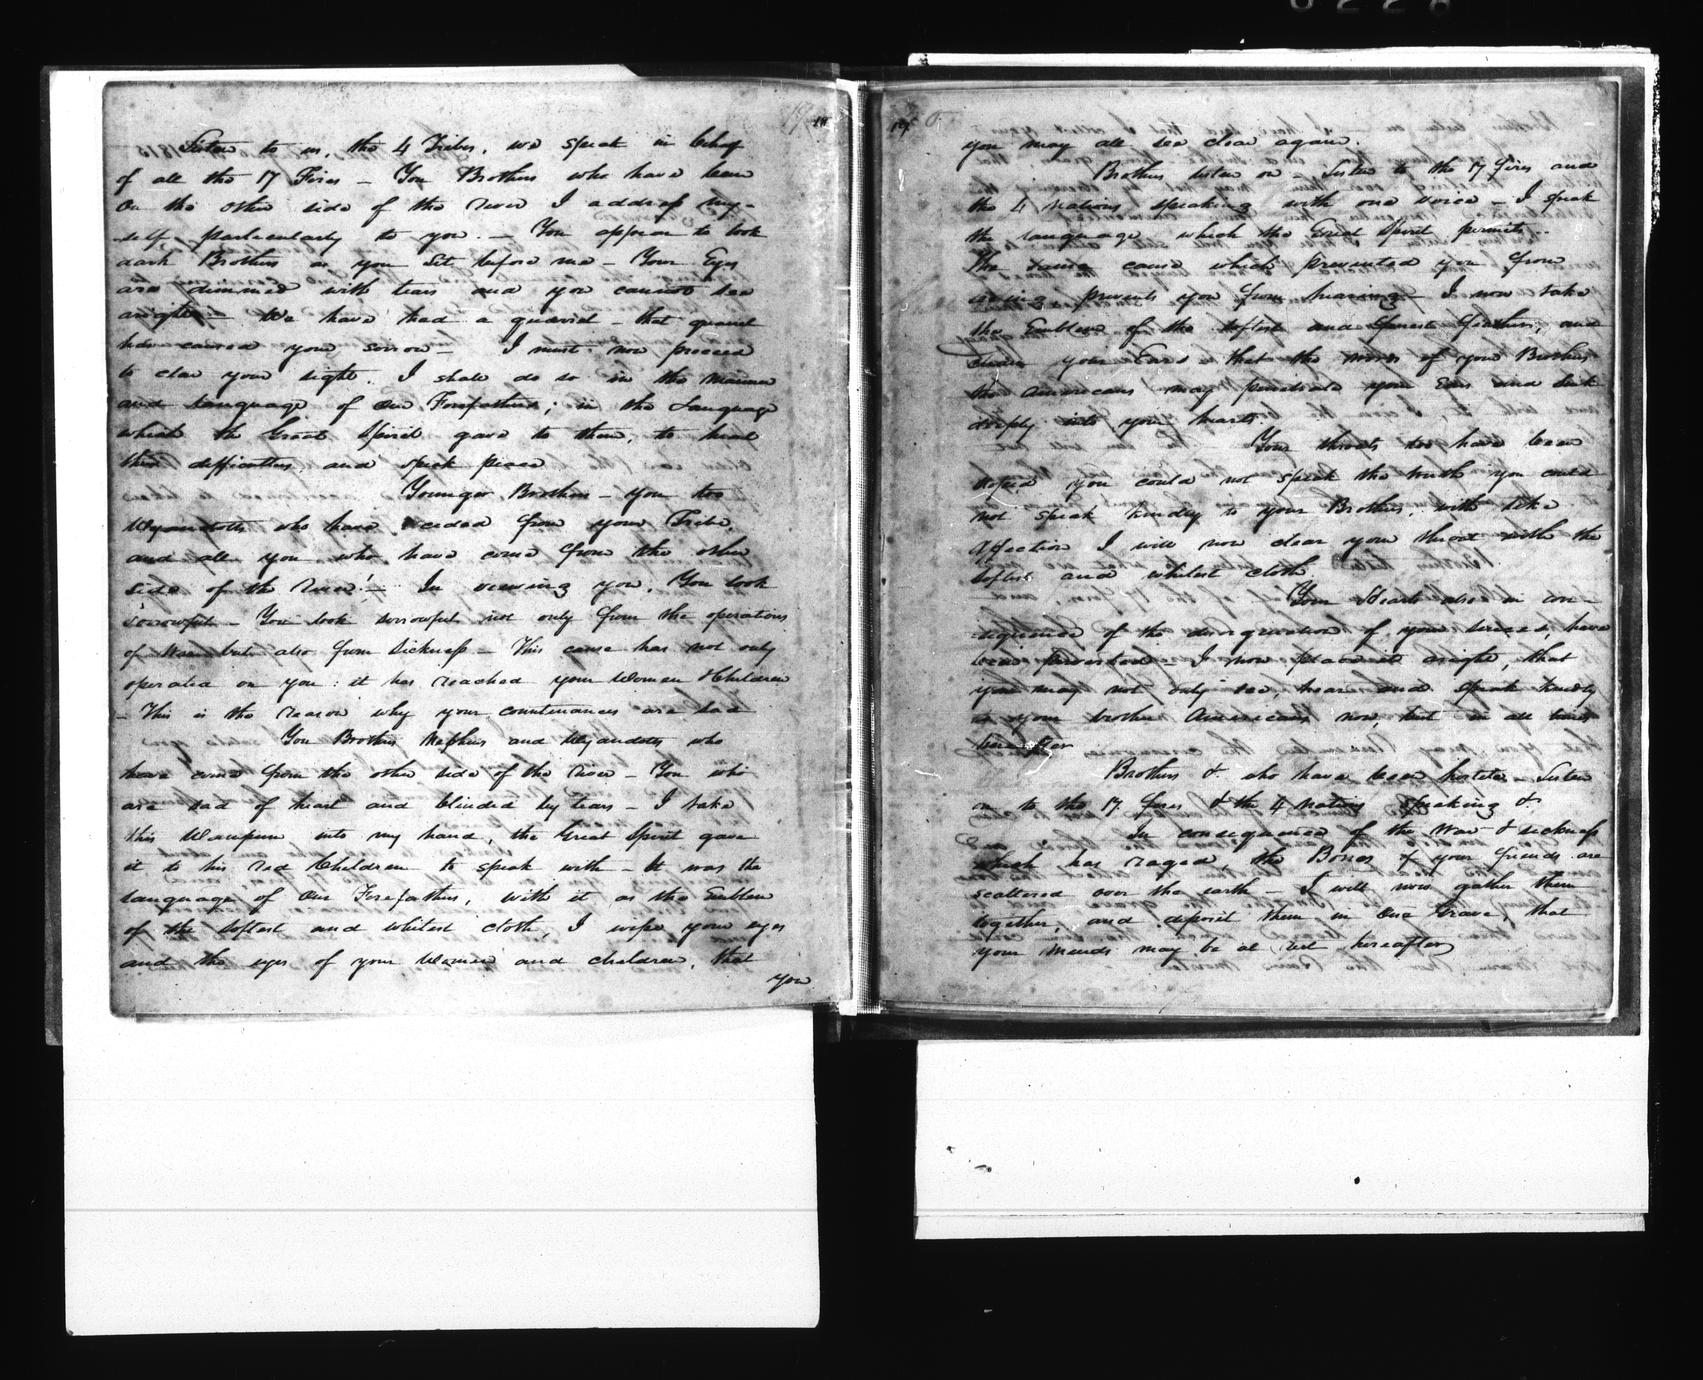 Listen to us, the 4 Tribes, we speak in behalf
of all the 17 Fires – You Brothers who have been
on the other side of the river I address my-
self particularly to you. – You appear to look
dark Brothers as you sit before me – Your Eyes
are dimmed with tears and you cannot see
aright – We have had a quarrel – that quarrel
has caused your sorrow – I must now proceed
to clear your sight. I shall do so in the manner
and language of our Forefathers; in the Language
which the Great Spirit gave to them, to heal
their difficulties, and speak peace
Younger Brothers – you too
Wyandotts who have ceded from your Tribe,
and all you who have come from the other
side of the river! – In viewing you, You look
sorrowful – You look sorrowful not only from the operations
of War but also from Sickness – This cause has not only
operated on you: it has reached your Women & Children
– This is the reason why your countenances are sad
You Brothers Nephews and Wyandotts who
have come from the other side of the river – You who
are sad of heart and blinded by tears – I take
this Wampum into my hand, the Great Spirit gave
it to his red Children to speak with – It was the
language of our Forefathers, with it as the Emblem
of the softest and whitest cloth, I wipe your eyes
and the eyes of your Women and children, that
you
you may all see clear again.
Brothers listen on – Listen to the 17 Fires and
the 4 Nations speaking with one voice – I speak
the language which the Great Spirit permits –
The same cause which prevented you from
seeing prevents you from hearing – I now take
the Emblem of the softest and finest feathers, and
clean your Ears that the words of your Brothers
the Americans may penetrate your Ears and sink
deeply into your hearts.
Your throats too have been
you could not speak the truth you could
not speak kindly to your Brothers, with like
affection I will now clear your throat with the
softest and whitest cloth
Your Hearts also in con-
sequence of the disorganization of your senses, have
been perverted – I now place it aright, that
you may not only see, hear and speak kindly
to your brother Americans now, but in all times
hereafter
Brothers &. who have been hostile – Listen
on to the 17 fires & the 4 Nations speaking &.
In consequence of the War & sickness
which has raged, the Bones of your friends are
scattered over the earth – I will now gather them
together, and deposit them in One Grave, that
your minds may be at rest hereafter